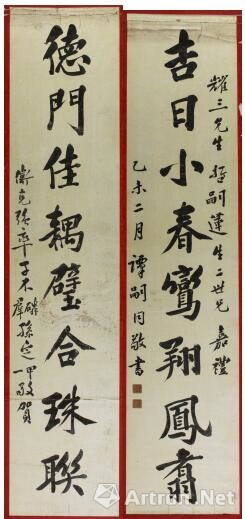 耀三先生哲嗣蓮生二世兄嘉禮
吉日小春鸞翔鳳翥
乙未二月譚嗣同敬書
德門佳耦璧合珠聯
衡克張率子不磷
羣孫定一甲敬賀
Artron.Net